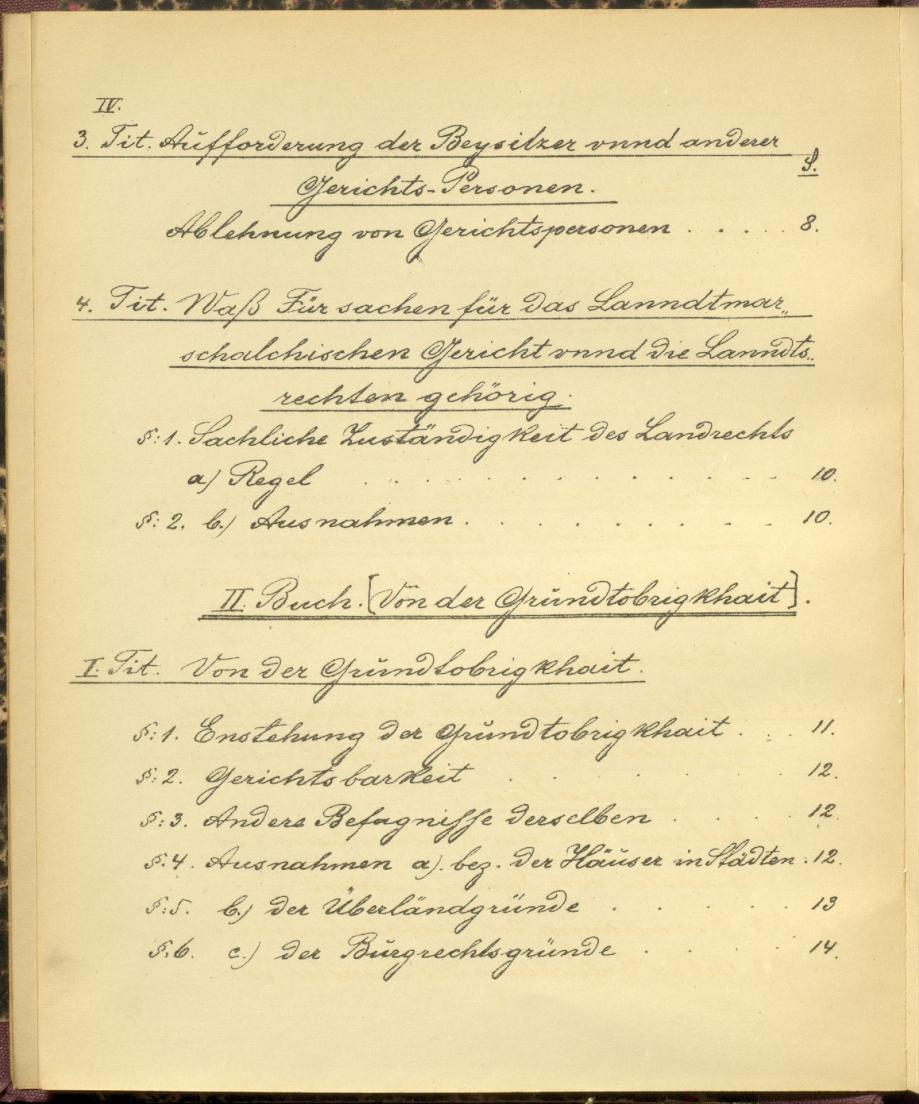 IV.
3. Tit. Aufforderung der Beysitzer vnnd anderer
S.
Gerichts-Personen.
Ablehnung von Gerichtspersonen . . . . . 8.
4. Tit. Waß Für sachen für das Lanndtmar„
schalchischen Gericht vnnd die Lanndts„
rechten gehörig.
§: 1. Sachliche Zuständigkeit des Landrechts
a) Regel . . . . . . . . . . . . . 10.
§: 2. b.) Ausnahmen . . . . . . . . . 10.
II. Buch. [Von der Grundtobrigkhait].
I. Tit. Von der Grundtobrigkhait.
§: 1. Enstehung der Grundtobrigkhait . . . 11.
§: 2. Gerichtsbarkeit . . . . . . . 12.
§: 3. Andere Befugnisse derselben . . . . 12.
§. 4. Ausnahmen a). bez. der Häuser in Städten . 12.
§: 5. b.) der Überländgründe . . . . . 13
§: 6. c.) der Burgrechtsgründe . . . . . 14.